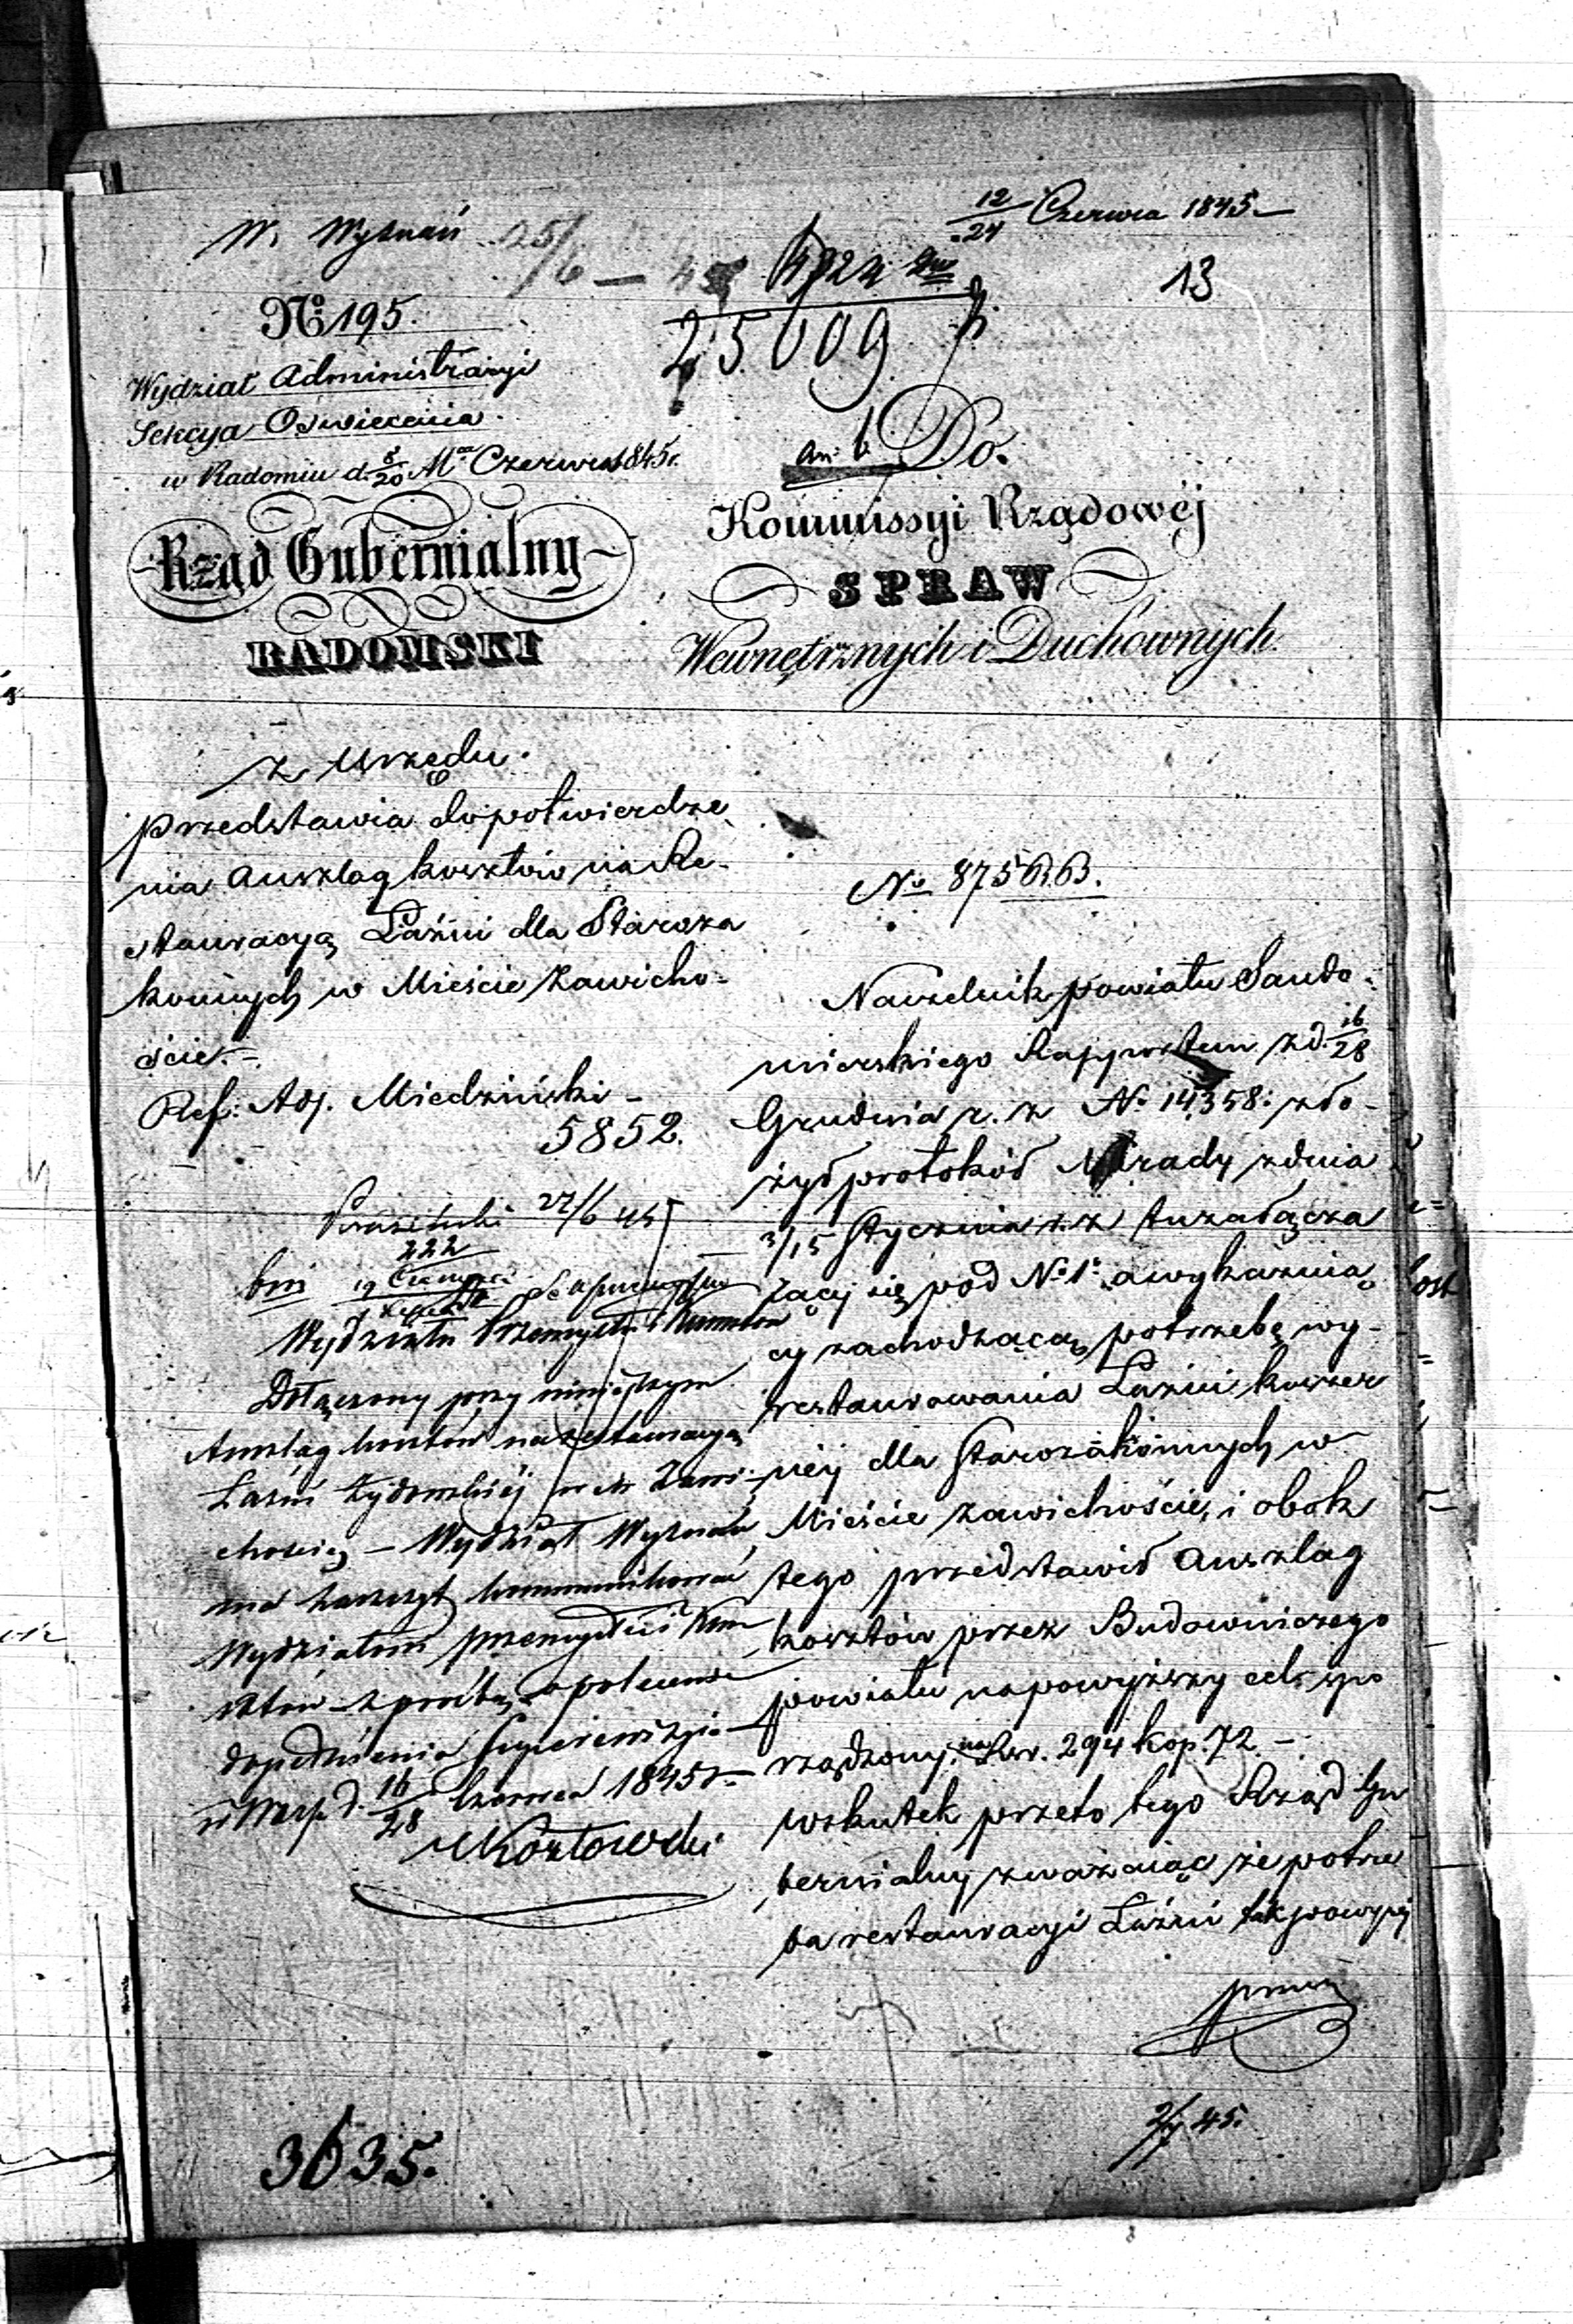 12/24 Czerwca 1845
W. Wyznań 25/6 — 45
13
25009
№ 195.
Wydział Administracyi
Sekcya Oświecenia.
w Radomiu d. 8/20 M<sup>ca</sup> Czerwca 1845 r.
Rząd Gubernialny
RADOMSKI
Do.
Kommissyi Rządowéj
SPRAW
Wewnętrznych i Duchownych.
z Urzędu.
przedstawia do potwierdze
nia Anszlag kosztów na Re-
stauracyą Łaźni dla Staroza
konnych w Mieście Zawicho-
ście.
Ref: Adj. Miedziński -
5852.
27/6 45
222
Wydziału Przemysłu i Kunsztów
Dołączony przy niniéjszym
Anszlag kosztów na restauracyą
Łaźni Żydowskiéj w m. Zawi-
choście - Wydział Wyznań
ma zaszczyt kommunikować
Wydziałowi przemysłu i Kun
sztów - z prośbą o polecenie
dopełnienia Superrewizyi -
w Warsz. d. 16/28 Czerwca 1845 r.
Kozłowski
3635.
№ 87563.
Naczelnik powiatu Sando-
mierskiego Rapportem z d. 16/28
Grudnia r. z. № 14,358: zło-
żył protokół Narady z dnia
3/15 Stycznia r. z. tu załącza
jący się pod № 1º a wykazują
cy zachodzącą potrzebę wy-
restaurowania Łaźni koszer
néj dla Starozakonnych w
Mieście Zawichoście, i obok
tego przedstawił Anszlag
kosztów przez Budowniczego
powiatu na powyższy cel spo
rządzony, na Rsr. 294 kop. 72 -
Wskutek przeto tego Rząd Gu
bernialny zważając że potrze
ba restauracyi Łaźni tak powyżéj
2/7 45.